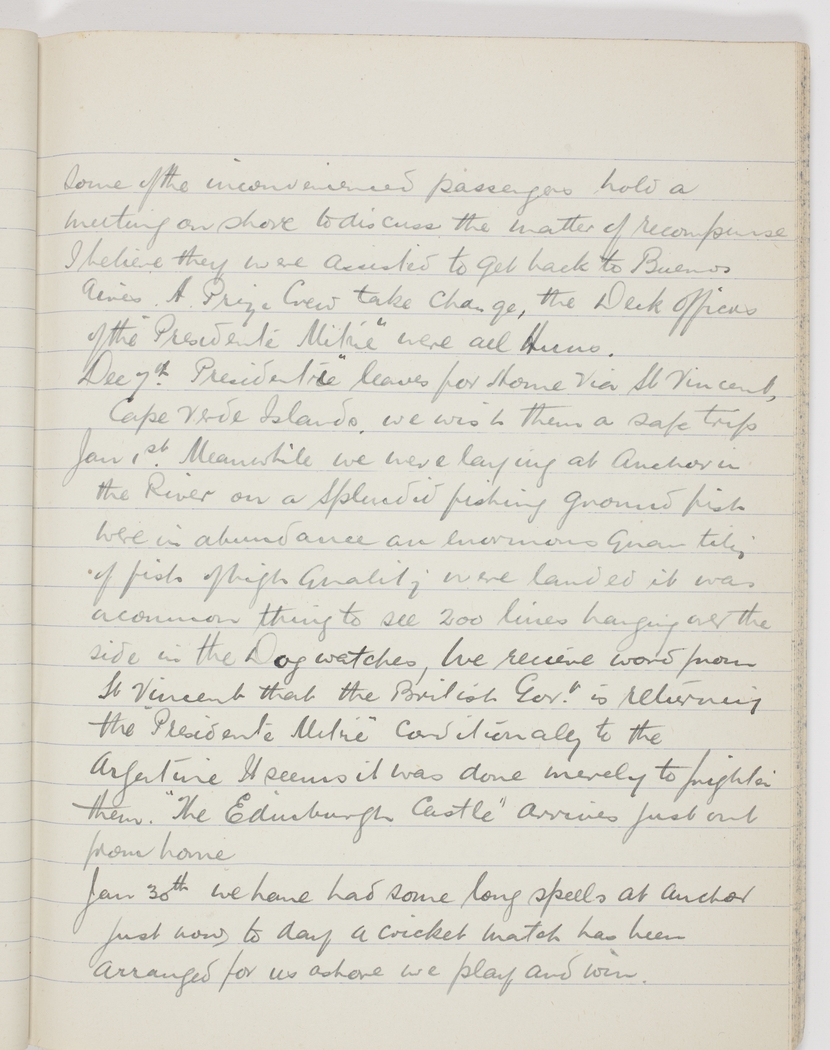 some of the inconvenienced passengers hold a
meeting on shore to discuss the matter of recompense
I believe they were assisted to get back to Buenos
Aires. A Prize Crew take charge, the Deck Officers
of the "Presidente Mitrie" were all Huns.
Dec 7th. Presidentrie" leaves for Home Via St Vincent,
Cape Verde Islands, we wish them a safe trip
Jan 1st. Meanwhile we were laying at Anchor in
the River on a Splendid fishing ground fish
were in abundance an enormous Quantity
of fish of high Quality were landed it was
a common thing to see 200 lines hanging over the
side in the Dog watches, We receive word from
St Vincent that the British Gov.t is returning
the "Presidente Mitrie" Conditionaly to the
Argentine It seems it was done merely to frighten
them. "The Edinburgh Castle" arrives just out
from home
Jan 30th we have had some long spells at Anchor
just now, to day a cricket match has been
arranged for us ashore we play and win.